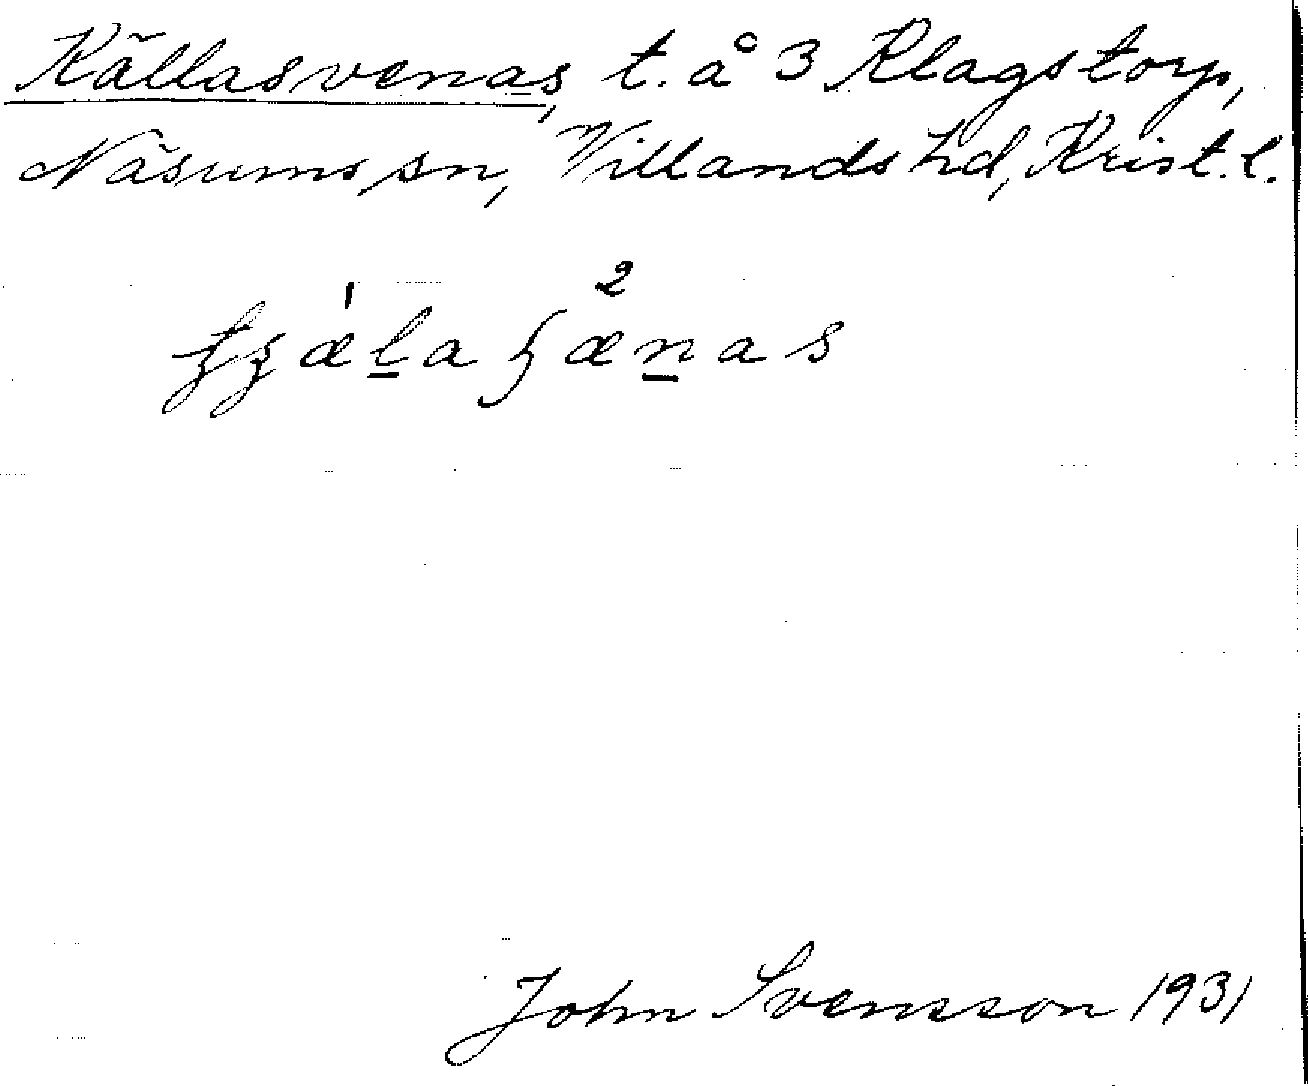 Källasvenas, t. å 3 Klagstorp,
Näsums sn, Villands hd, Krist. l.
John Svensson 1931